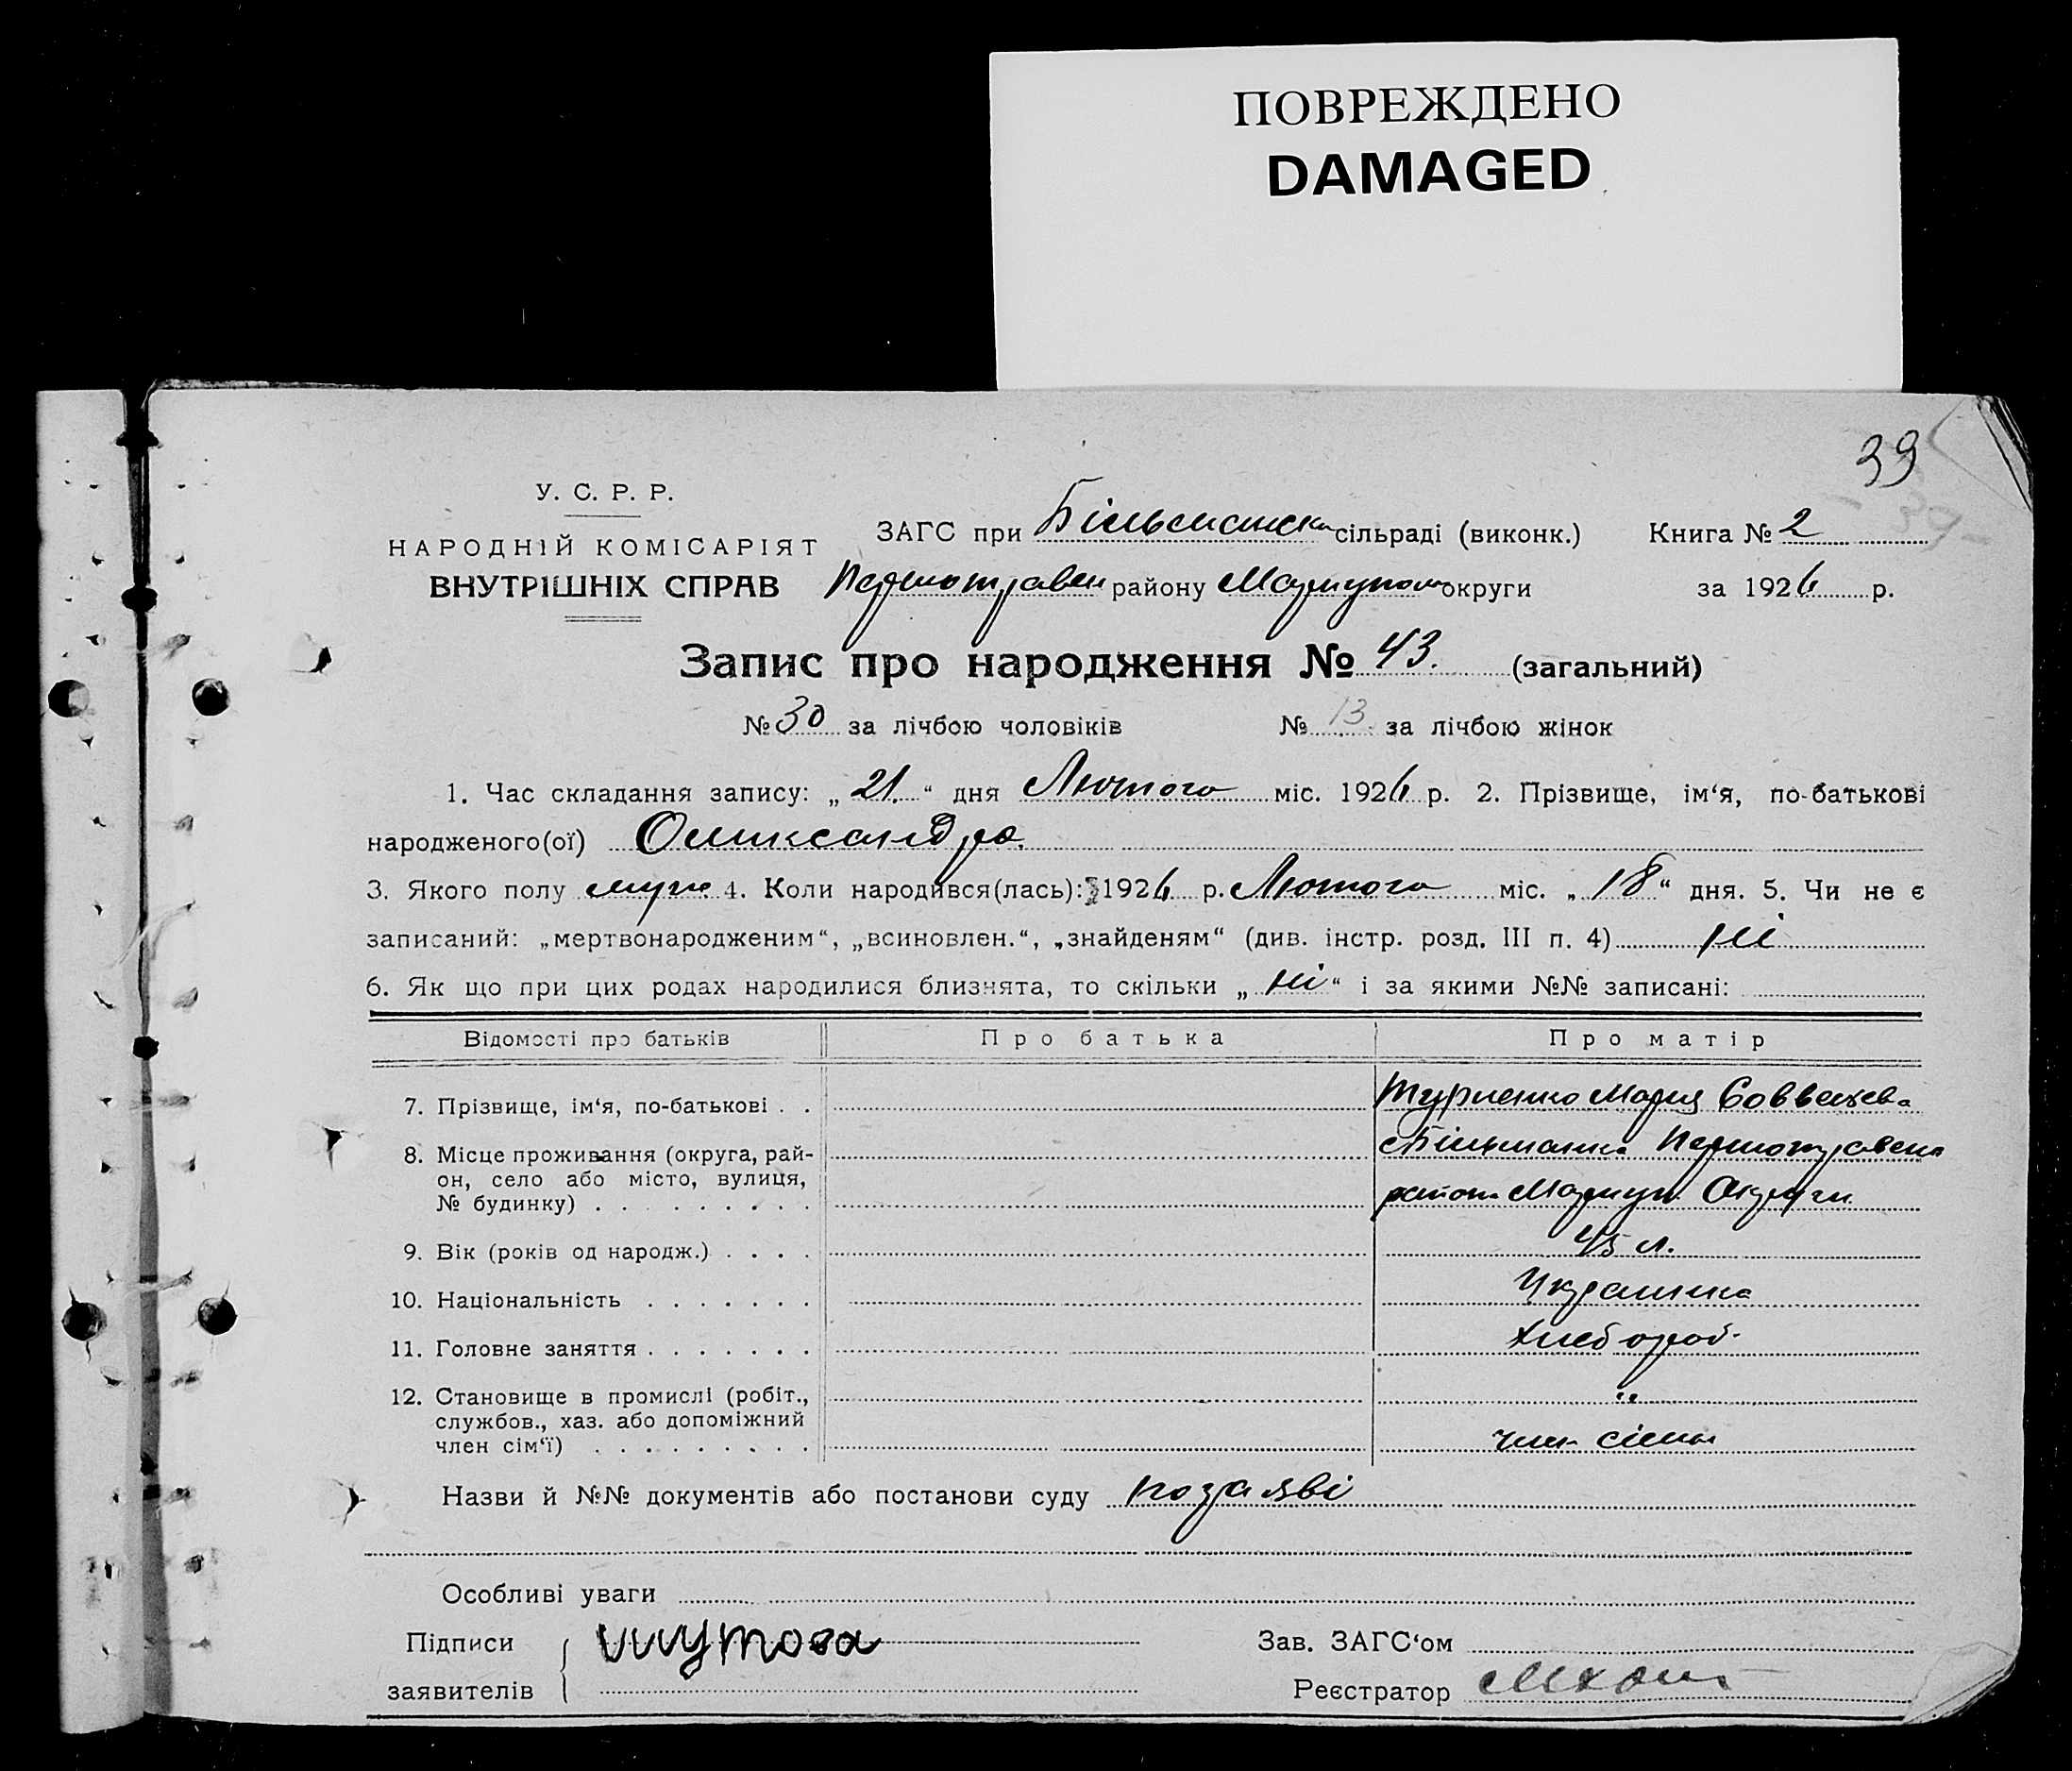 ПОВРЕЖДЕНО
DAMAGED
39
39
У. С. Р. Р.
НАРОДНІЙ КОМІСАРІЯТ
ВНУТРІШНІХ СПРАВ
ЗАГС при Більманск сільраді (виконк.) Книга № 2
Першотравен району Маріупол округи за 1926 р.
Запис про народження № 43. (загальний)
№ 30 за лічбою чоловіків № 13 за лічбою жінок
1. Час складання запису: „21.“ дня Лютого міс. 1926 р. 2. Прізвище, ім‘я, по-батькові
народженого(ої) Оликсандр
3. Якого полу муж. 4. Коли народився(лась): 1926 р. Лютого міс. „18“ дня. 5. Чи не є
записаний: „мертвонародженим“, „всиновлен.“, „знайденям“ (див. інстр. розд. III п. 4) Ні
6. Як що при цих родах народилися близнята, то скільки „Ні“ і за якими №№ записані:
Відомості про батьків Про батька Про матір
7. Прізвище, ім‘я, по-батькові . . Мария
8. Місце проживання (округа, рай- Більманка Першотравен
он, село або місто, вулиця, район Маріуп. Округи
№ будинку) . . . . . . . . .
9. Вік (років од народж.) . . . . 45 л.
10. Національність . . . . . . . Украинка
11. Головне заняття . . . . . . . Хлебороб
12. Становище в промислі (робіт., "
службов., хаз. або допоміжний
член сім‘ї) . . . . . . . . . член сімьи
Назви й №№ документів або постанови суду по заяві
Особливі уваги
Підписи
заявителів
Зав. ЗАГС‘ом
Реєстратор